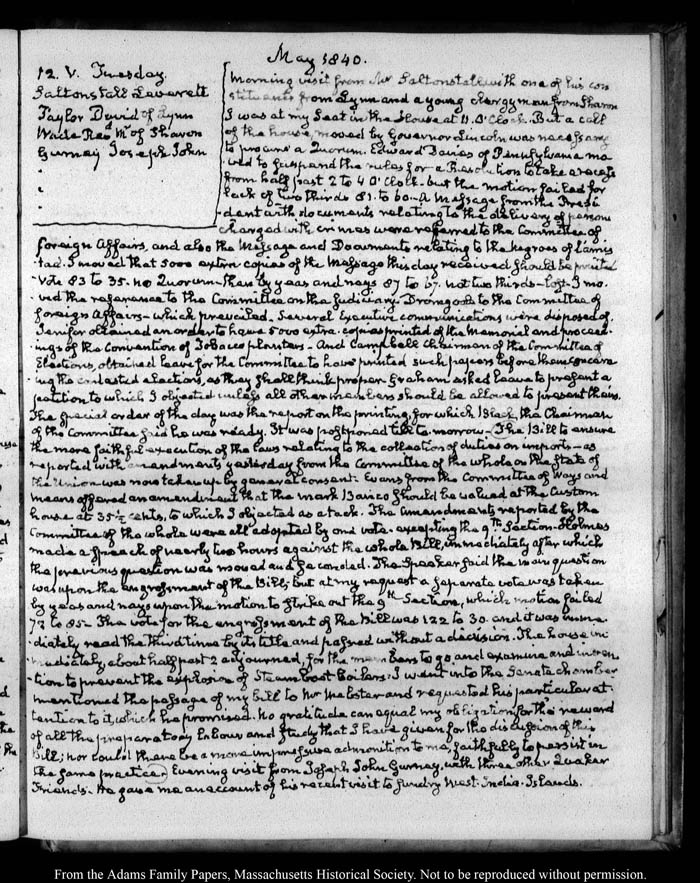 May 1840.
12. V. Tuesday.
Saltonstall Leverett
Taylor David of Lynn
Wade Rev Mr of Sharon
Gurney Joseph John
Morning visit from Mr Saltonstall with one of his con
stituents from Lynn and a young clergyman from Sharon
I was at my Seat in the House at 11. O'Clock. But a call
of the house, moved by Governor Lincoln was necessary
to procure a Quorum. Edward Davies of Pennsylvania mo-
ved to suspend the rules for a Resolution to take a recess
from half past 2 to 4 O'Clock. but the motion failed for
lack of two thirds 81. to 60 - A Message from the Presi
dent with documents relating to the delivery of persons
charged with crimes were referred to the Committee of
foreign Affairs, and also the Message and Documents relating to the negroes of L'amis
tad. I moved that 5000 extra copies of the Message this day received should be printed
Vote 83 to 35. no Quorum - then by yeas and nays 87 to 67. not two thirds - lost. I mo-
ved the reference to the Committee on the Judiciary. Dromgoole to the Committee of
foreign Affairs - which prevailed. Several Executive communications were disposed of.
Jenifer obtained an order to have 5000 extra copies printed of the Memorial and proceed-
ings of the Convention of Tobacco planters - And Campbell Chairman of the Committee of
Elections, obtained leave for the Committee to have printed such papers before them concern
ing the contested elections, as they shall think proper. Graham asked leave to present a
petition to which I objected unless all other members should be allowed to present theirs.
The special order of the day was the report on the printing, for which Black, the Chairman
of the Committee said he was ready. It was postponed till to-morrow - The Bill to ensure
the more faithful execution of the laws relating to the collection of duties on imports - as
reported with amendments yesterday from the Committee of the whole on the State of
the Union was now taken up by general consent. Evans from the Committee of Ways and
means offered an amendment that the mark Banco should be valued at the Custom
house at 35½ cents, to which I objected as a tack. The Amendments reported by the
Committee of the whole were all adopted by one vote. excepting the 9th Section. Holmes
made a speech of nearly two hours against the whole Bill, immediately after which
the previous question was moved and seconded. The Speaker said the main question
was upon the engrossment of the Bill; but at my request a separate vote was taken
by yeas and nays upon the motion to strike out the 9th Section, which motion failed
73 to 85 - The vote for the engrossment of the Bill was 122 to 30. and it was imme-
diately read the third time by its title and passed without a decision. The house im
mediately about half past 2 adjourned, for the members to go and examine and inven
tion to prevent the explosion of Steam boat boilers. I went into the Senate chamber
mentioned the passage of my bill to Mr Webster and requested his particular at-
tention to it, which he promised. No gratitude can equal my obligation for the reward
of all the preparatory labour and study that I have given for the discussion of this
Bill; nor could there be a more impressive admonition to me, faithfully to persist in
the same practice. Evening visit from Joseph John Gurney, with three other Quaker
Friends. He gave me an account of his recent visit to sundry West-India Islands.
From the Adams Family Papers, Massachusetts Historical Society. Not to be reproduced without permission.